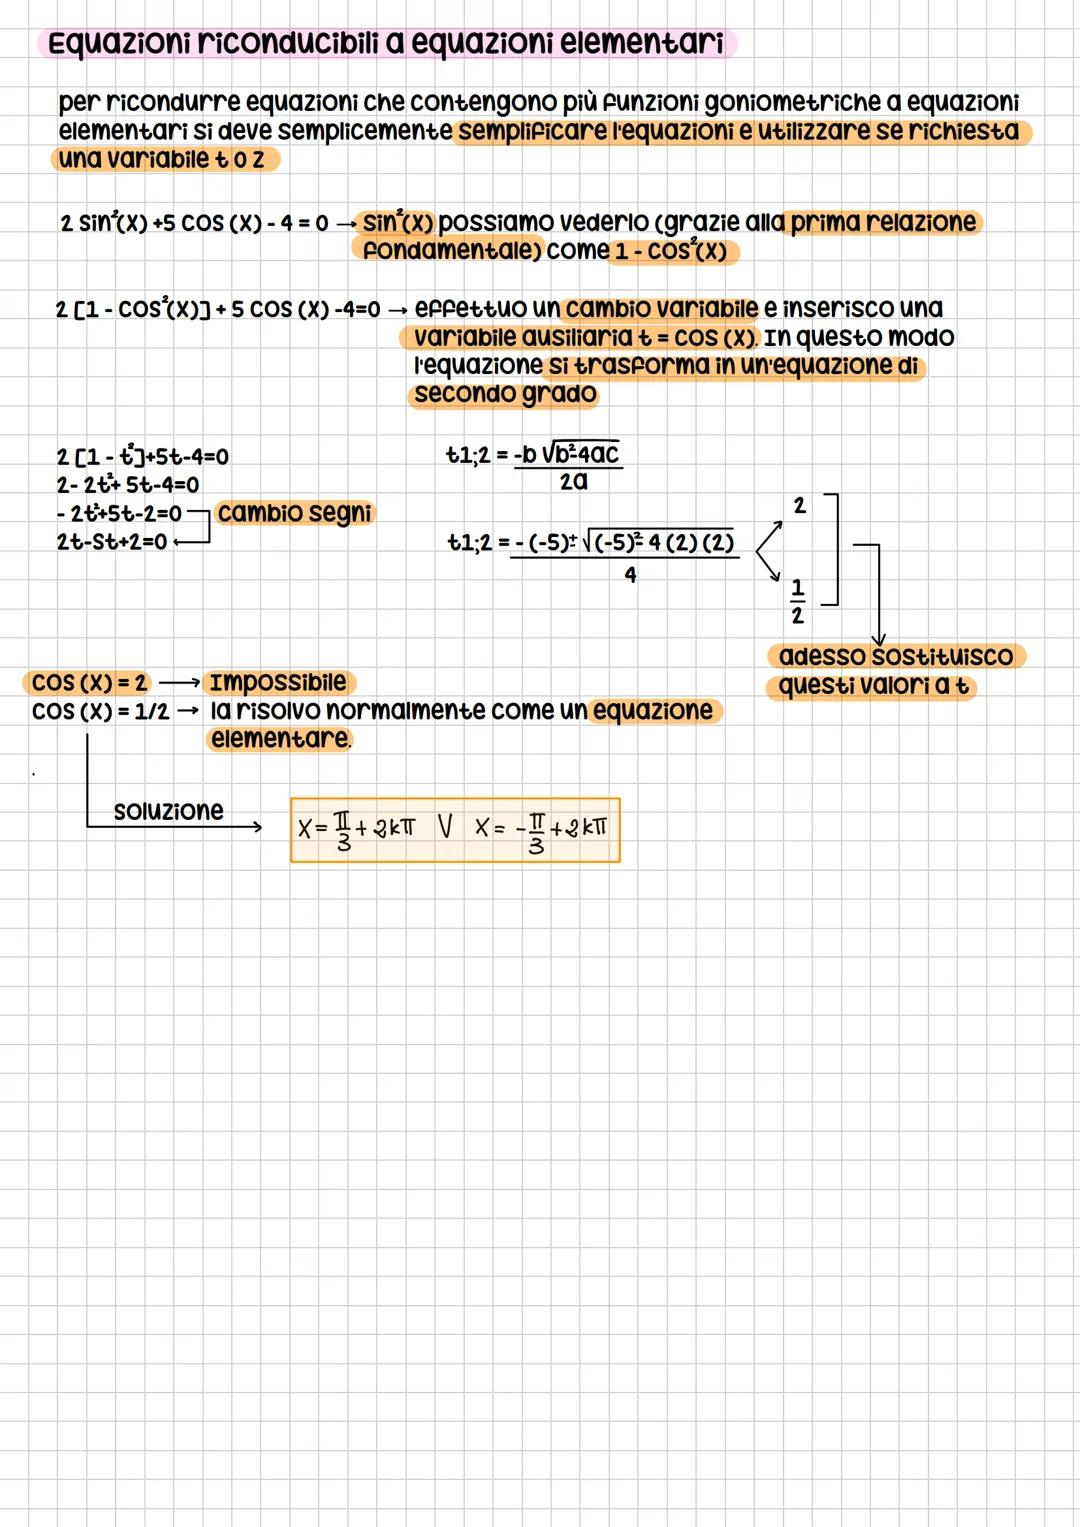 Equazioni riconducibili a equazioni elementari
per ricondurre equazioni che contengono più funzioni goniometriche a equazioni
elementari si deve semplicemente semplificare l'equazioni e utilizzare se richiesta
una variabile t o z
2 Sin²(X) +5 COS (X) - 4 = 0 → sin²(X) possiamo vederlo (grazie alla prima relazione
fondamentale) come 1 - COS²(X)
2 [1 - COS²(X)] + 5 COS (X) -4=0 → effettuo un cambio variabile e inserisco una
variabile ausiliaria t = COS (X). In questo modo
l'equazione si trasforma in un'equazione di
secondo grado
2 [1 - t²]+5t-4=0
2- 2t²+ 5t-4=0
- 2t²+5t-2=0 cambio segni
2t-St+2=0
t1;2 = -b √b²-4ac
2a
t1;2 = - (-5)± √(-5)²- 4 (2) (2)
4
2
1
2
adesso sostituisco
questi valori a t
COS (X) = 2 → Impossibile
COS (X) = 1/2 → la risolvo normalmente come un equazione
elementare.
soluzione
X= π/3 + 2kπ V X= -π/3 +2kπ